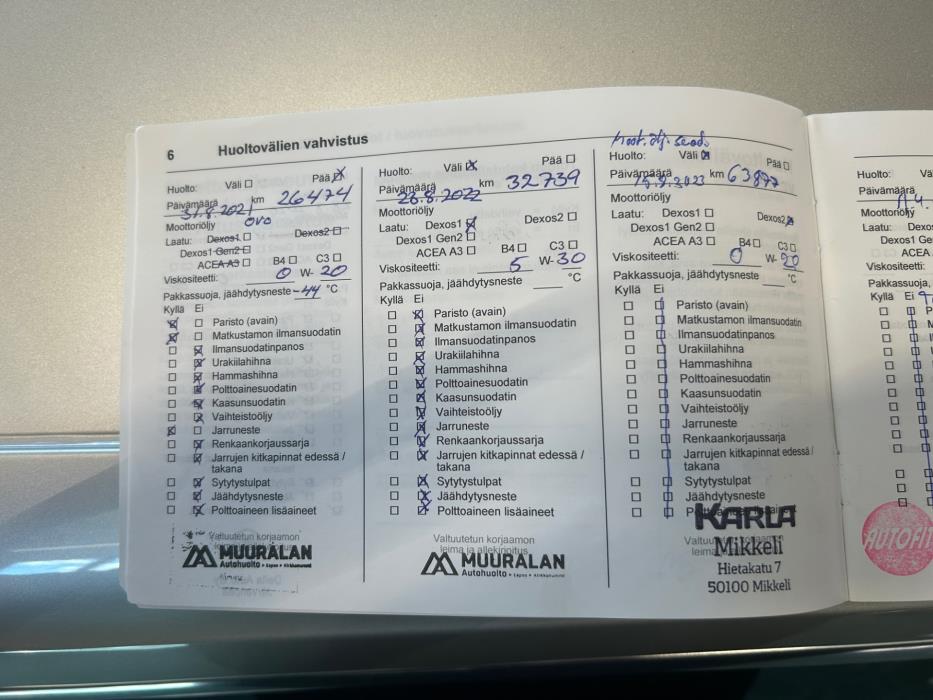 6 Huoltovälien vahvistus
Huolto: Väli Pää
Päivämäärä 31.8.2021 km 26474
Moottoriöljy OVO
Laatu: Dexos1 Dexos2
Dexos1 Gen2
ACEA A3 B4 C3
Viskositeetti: 0 W- 20
Pakkassuoja, jäähdytysneste -44 °C
Kyllä Ei
Paristo (avain)
Matkustamon ilmansuodatin
Ilmansuodatinpanos
Urakiilahihna
Hammashihna
Polttoainesuodatin
Kaasunsuodatin
Vaihteistoöljy
Jarruneste
Renkaankorjaussarja
Jarrujen kitkapinnat edessä /
takana
Sytytystulpat
Jäähdytysneste
Polttoaineen lisäaineet
Valtuutetun korjaamon
MUURALAN
Autohuolto • Espoo • Kirkkonummi
Huolto: Väli Pää
Päivämäärä 23.8.2022 km 32739
Moottoriöljy
Laatu: Dexos1 Dexos2
Dexos1 Gen2
ACEA A3 B4 C3
Viskositeetti: 5 W- 30
Pakkassuoja, jäähdytysneste °C
Kyllä Ei
Paristo (avain)
Matkustamon ilmansuodatin
Ilmansuodatinpanos
Urakiilahihna
Hammashihna
Polttoainesuodatin
Kaasunsuodatin
Vaihteistoöljy
Jarruneste
Renkaankorjaussarja
Jarrujen kitkapinnat edessä /
takana
Sytytystulpat
Jäähdytysneste
Polttoaineen lisäaineet
Valtuutetun korjaamon
leima ja allekirjoitus
MUURALAN
Autohuolto • Espoo • Kirkkonummi
Huolto: Väli Pää
Päivämäärä 15.9.2023 km 63897
Moottoriöljy
Laatu: Dexos1 Dexos2
Dexos1 Gen2
ACEA A3 B4 C3
Viskositeetti: 0 W- 20
Pakkassuoja, jäähdytysneste °C
Kyllä Ei
Paristo (avain)
Matkustamon ilmansuodatin
Ilmansuodatinpanos
Urakiilahihna
Hammashihna
Polttoainesuodatin
Kaasunsuodatin
Vaihteistoöljy
Jarruneste
Renkaankorjaussarja
Jarrujen kitkapinnat edessä /
takana
Sytytystulpat
Jäähdytysneste
Polttoaineen lisäaineet
KARLA
Mikkeli
Hietakatu 7
50100 Mikkeli
Huolto: Väl
Päivämäärä
Moottoriöljy
Laatu: Dexos
Dexos1 Ge
ACEA
Viskositeetti:
Pakkassuoja,
Kyllä Ei
AUTOFIT